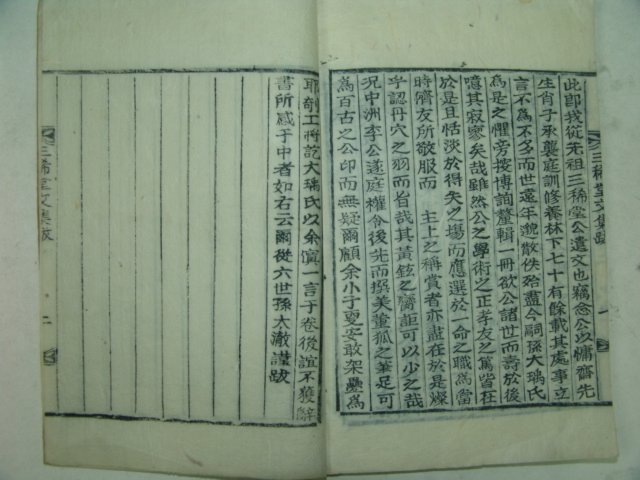 此卽我從先祖三稀堂公遺文也竊念公以慵齋先
生肖子承襲庭訓修養林下七十有餘載其處事立
言不爲不多而世遠年貌散佚殆盡今嗣孫大瑀氏
爲是之懼旁搜博詢釐輯一冊欲公諸世而壽於後
噫其寂寥矣哉雖然公之學術之正孝友之篤嘗在
於是且恬淡於得失之場而應選於一命之職爲當
時儕友所敬服而 主上之稱賞者亦盡在於是燦
乎認丹穴之羽而旨哉其黃鉉之臠詎可以少之哉
況中洲李公遂庭權令後先而撰美董狐之筆足可
爲百古之公印而無疑爾顧余小子夏安敢架疊爲
耶剞工將訖大瑀氏以余窴一言于卷後誼不獲辭
書所感于中者如右云爾從六世孫太澈謹跋
三稀堂文集跋
一
三稀堂文集跋
二